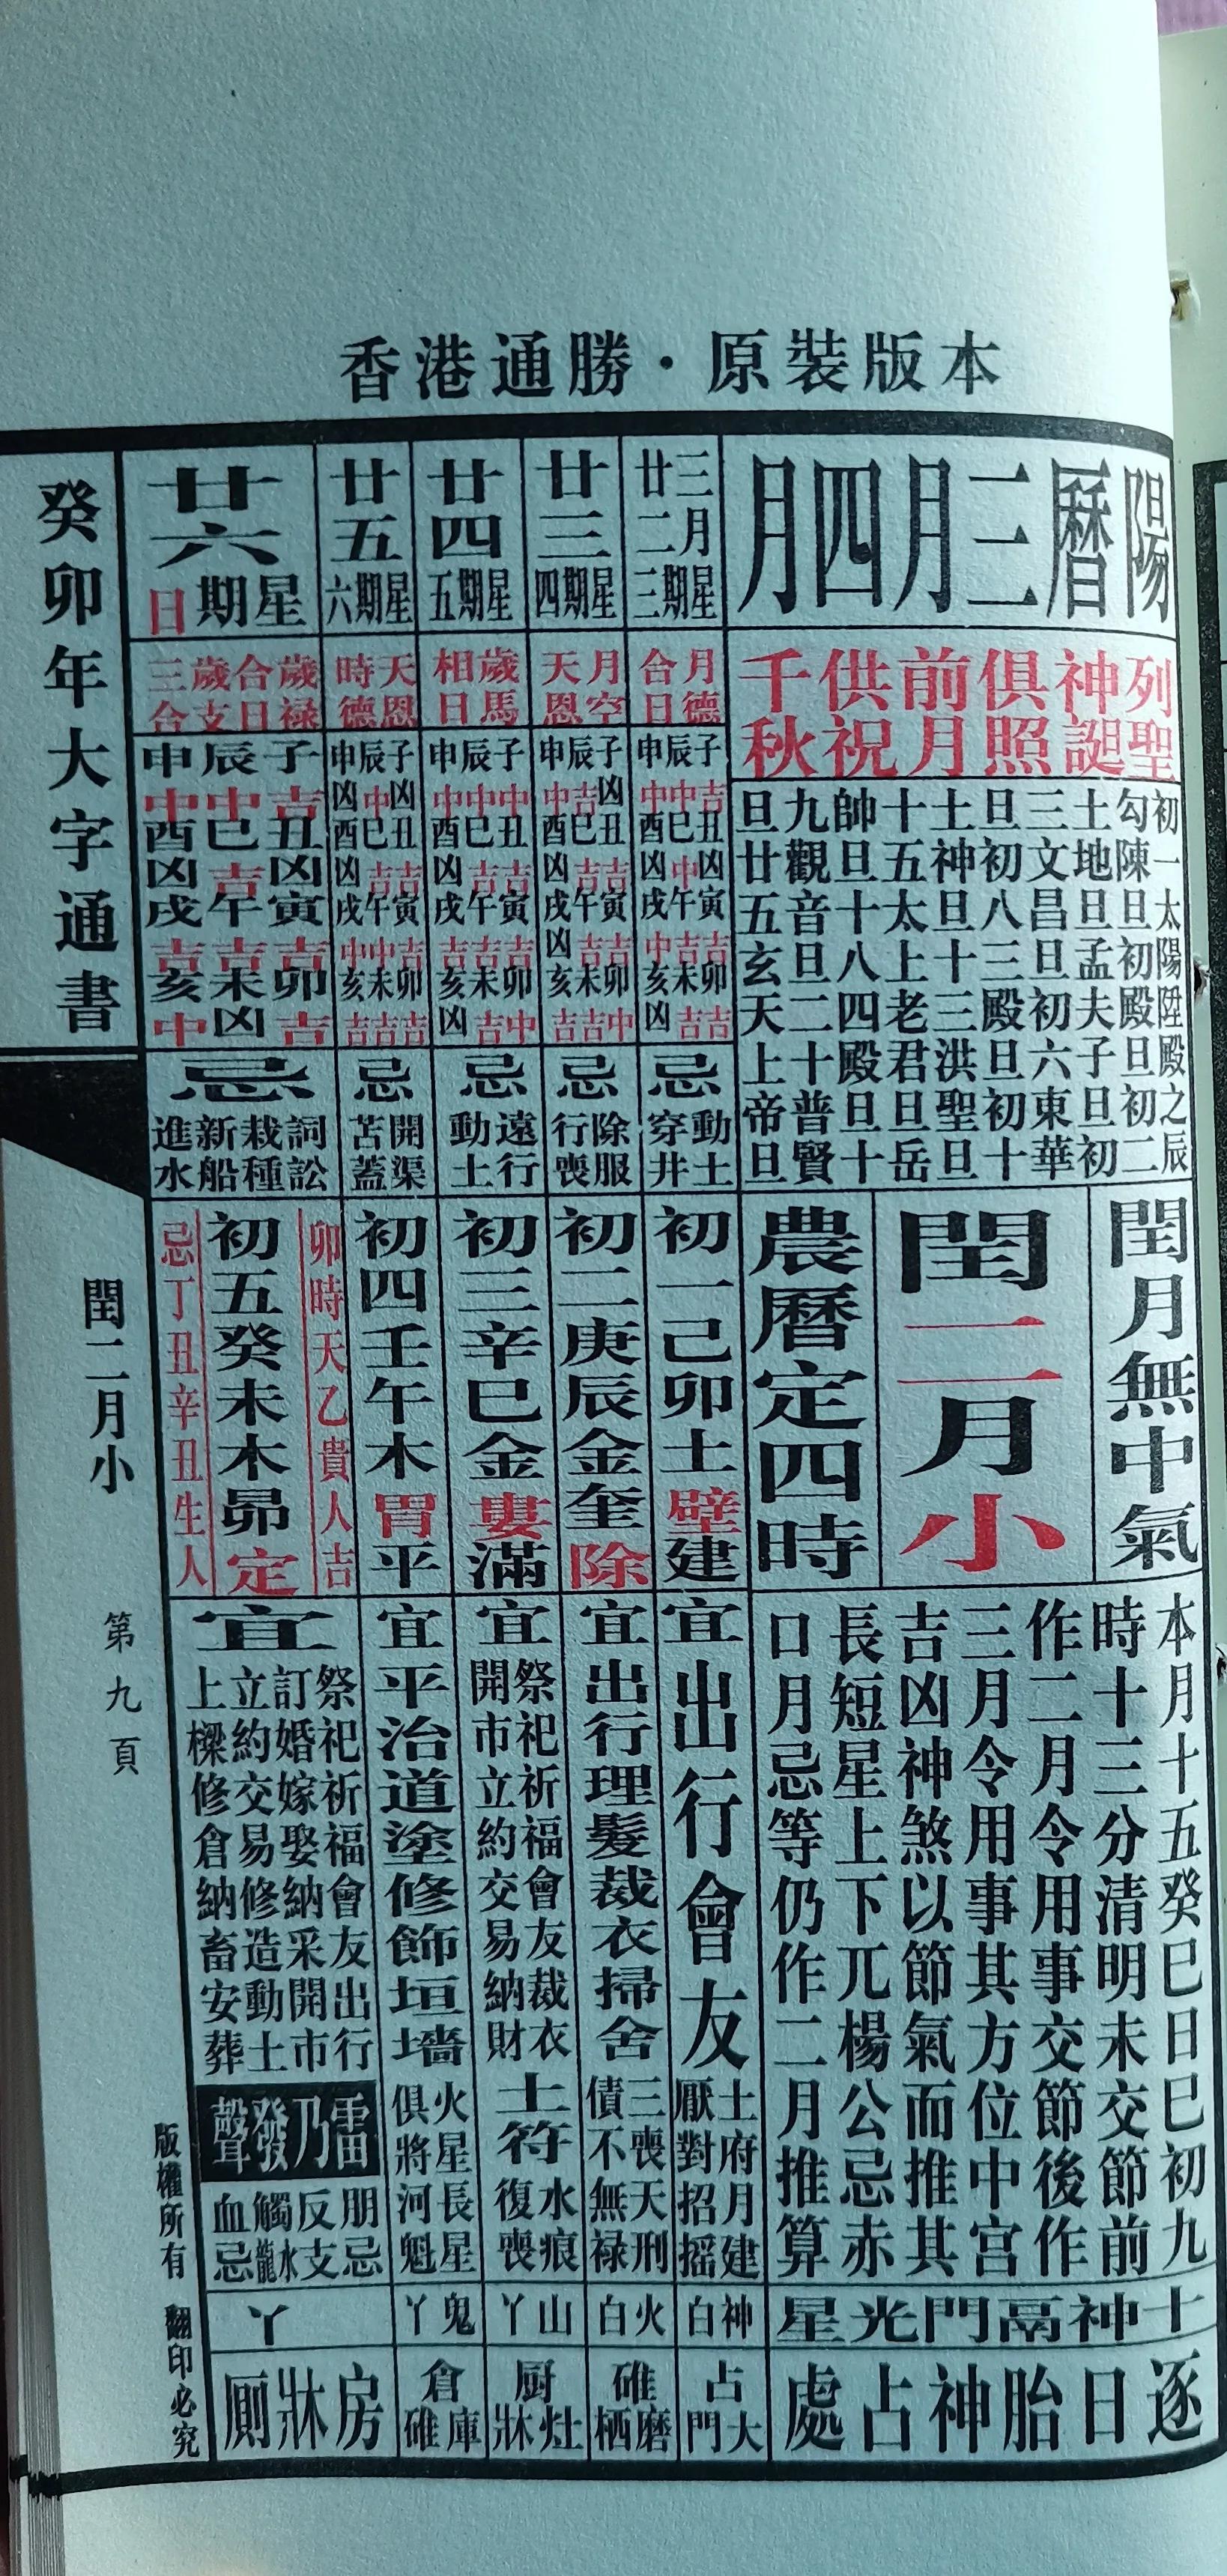 香港通勝·原裝版本
陽曆三月四月
列聖
神誕
俱照
前月
供祝
千秋
初一太陽陞殿之辰
勾陳旦初殿旦初二
土地旦孟夫子旦初
三文昌旦初六東華
旦初八三殿旦初十
土神旦十三洪聖旦
十五太上老君旦岳
帥旦十八四殿旦十
九觀音旦二十普賢
旦廿五玄天上帝旦
閏月無中氣
閏二月小
農曆定四時
本月十五癸巳日巳初九
時十三分清明未交節前
作二月令用事交節後作
三月令用事其方位中宮
吉凶神煞以節氣而推其
長短星上下兀楊公忌赤
口月忌等仍作二月推算
十神鬲門光星
逐日胎神占處
三月
廿二
星期三
月德
合日
子吉丑凶寅吉卯吉
辰中巳中午吉未吉
申中酉凶戌中亥凶
忌
動土
穿井
初一己卯土壁建
宜
出行會友
土府月建
厭對招摇
神白
占大門
廿三
星期四
月空
天恩
子凶丑吉寅吉卯中
辰吉巳吉午吉未吉
申中酉凶戌凶亥吉
忌
除服
行喪
初二庚辰金奎除
宜
出行理髮裁衣掃舍
三喪天刑
債不無禄
火白
碓磨栖
廿四
星期五
歲馬
相日
子中丑吉寅吉卯中
辰中巳吉午吉未吉
申中酉凶戌吉亥凶
忌
遠行
動土
初三辛巳金婁滿
宜
祭祀祈福會友裁衣
開市立約交易納財
土符
水痕
復喪
山丫
厨灶牀
廿五
星期六
天恩
時德
子凶丑吉寅吉卯吉
辰中巳吉午中未吉
申凶酉凶戌中亥吉
忌
開渠
苫蓋
初四壬午木胃平
宜
平治道塗修飾垣墻
火星長星
俱將河魁
鬼丫
倉庫碓
廿六
星期日
歲禄
合日
歲支
三合
子吉丑凶寅吉卯吉
辰中巳吉午吉未凶
申中酉凶戌吉亥中
忌
詞訟
栽種
新船
進水
卯時天乙貴人吉
初五癸未木昴定
忌丁丑辛丑生人
宜
祭祀祈福會友出行
訂婚嫁娶納采開市
立約交易修造動土
上樑修倉納畜安葬
雷乃發聲
朋忌
反支
觸水龍
血忌
丫
房牀厠
癸卯年大字通書
閏二月小
第九頁
版權所有 翻印必究